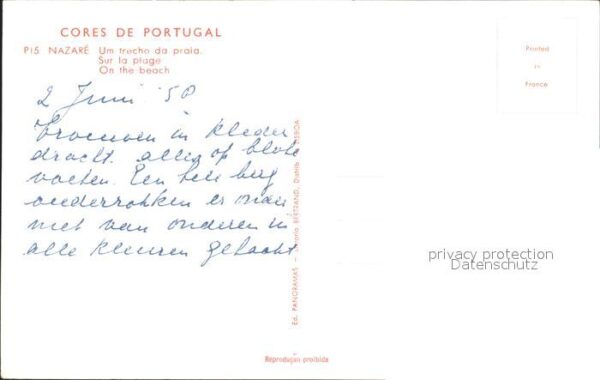 CORES DE PORTUGAL
P15 NAZARÉ Um trecho da praia.
Sur la plage
On the beach
2 Juni '58
Vrouwen in kleder
dracht. allen op blote
voeten. Een hele berg
onderrokken er onder
met van onderen in
alle kleuren gehaakt
Ed. PANORAMAS — BERTRAND, Distrib. LISBOA
Reprodução proibida
Printed
in
France
privacy protection
Datenschutz